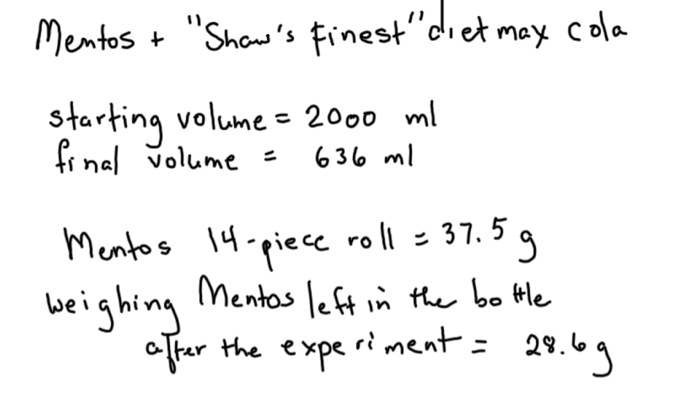 Mentos + "Shaw's Finest" diet max cola
starting volume = 2000 ml
final volume = 636 ml
Mentos 14-piece roll = 37.5 g
weighing Mentos left in the bottle
after the experiment = 28.6 g